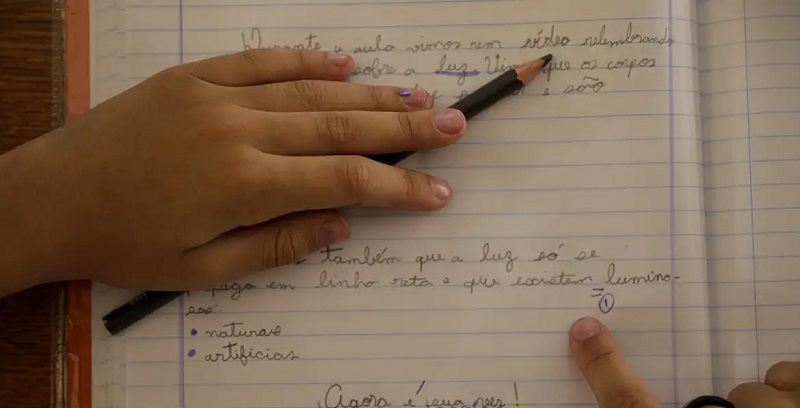 Durante a aula vimos um vídeo relembrando
sobre a luz. que os corpos
e são
também que a luz só se
em linha reta e que existem lumino-
sos:
①
• naturais
• artificias
Agora é sua vez!